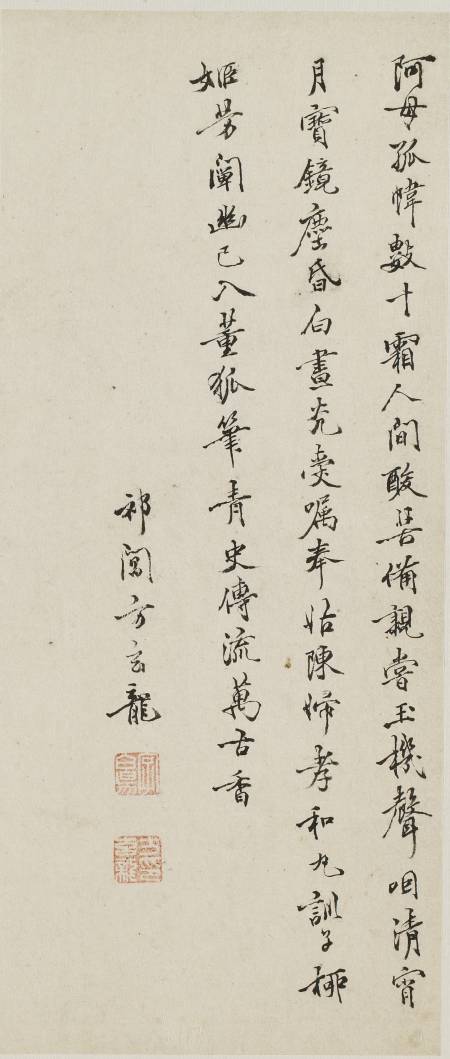 阿母孤幃數十霜人間酸苦備親嘗玉機聲咽清宵
月寶鏡塵昏白晝光受囑奉姑陳婦孝和丸訓子柳
姬芳闡幽已入董狐筆青史傳流萬古香
祁閶方玄龍